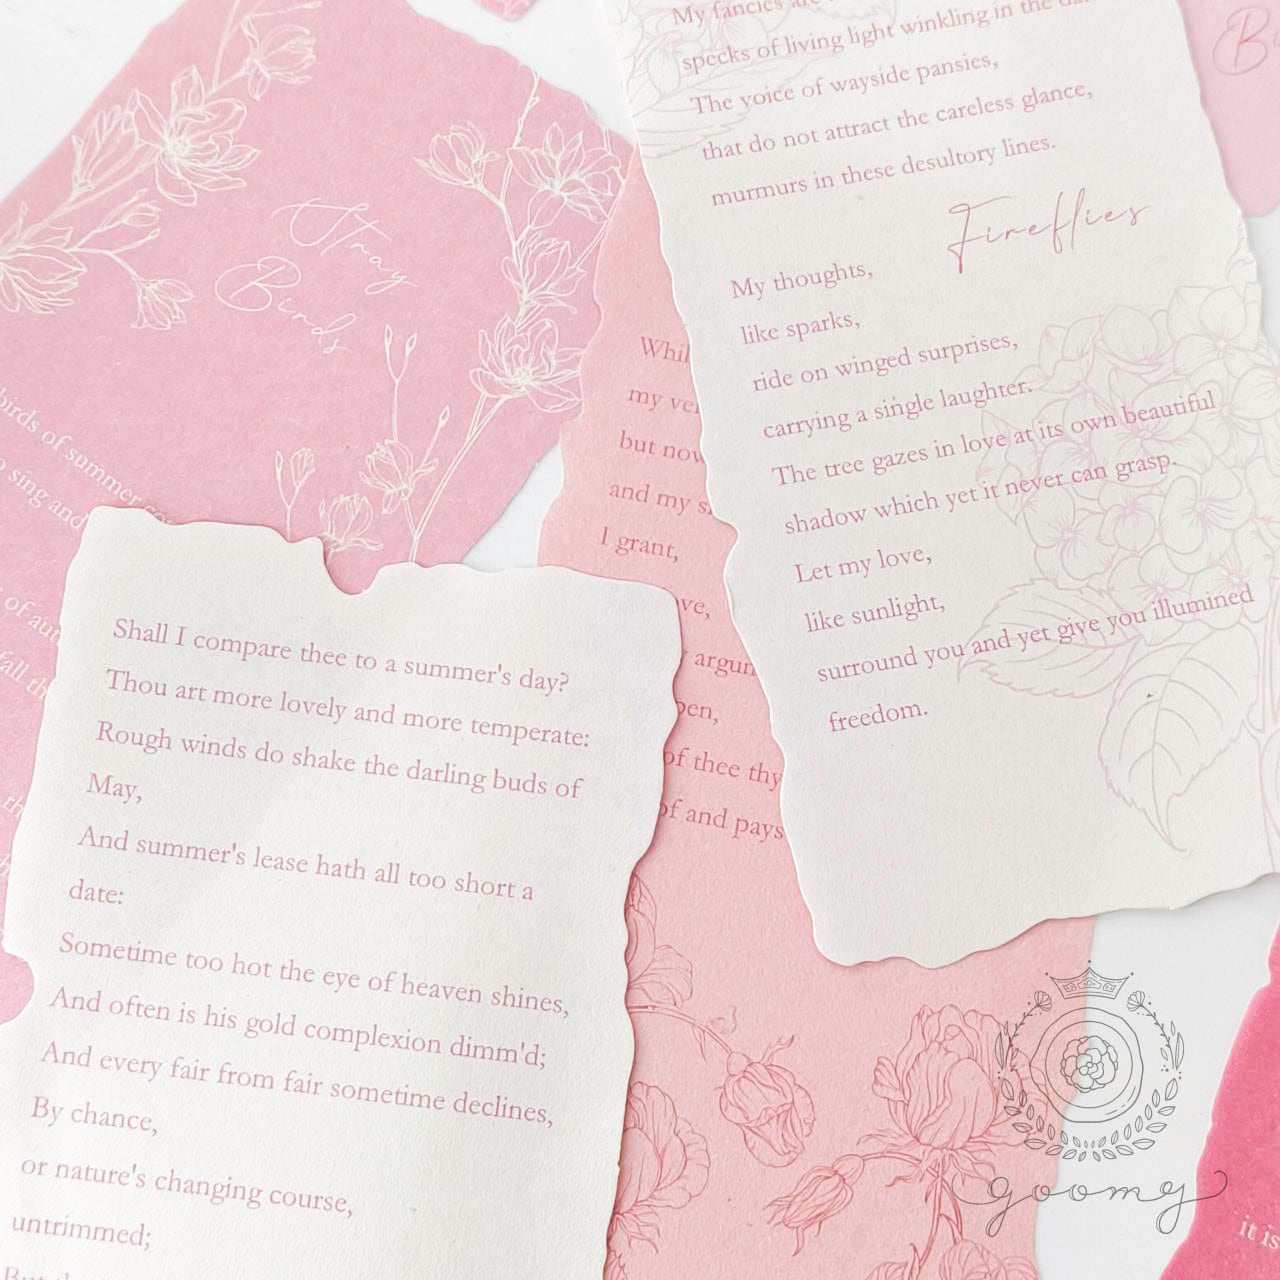 Stray
Birds
birds of summer
sing and
of
fall
Shall I compare thee to a summer's day?
Thou art more lovely and more temperate:
Rough winds do shake the darling buds of
May,
And summer's lease hath all too short a
date:
Sometime too hot the eye of heaven shines,
And often is his gold complexion dimm'd;
And every fair from fair sometime declines,
By chance,
or nature's changing course,
untrimmed;
my
but
and my
I grant,
of thee thy
and pays
My fancies are
specks of living light winkling in the
The voice of wayside pansies,
that do not attract the careless glance,
murmurs in these desultory lines.
Fireflies
My thoughts,
like sparks,
ride on winged surprises,
carrying a single laughter.
The tree gazes in love at its own beautiful
shadow which yet it never can grasp.
Let my love,
like sunlight,
surround you and yet give you illumined
freedom.
it is
goomy